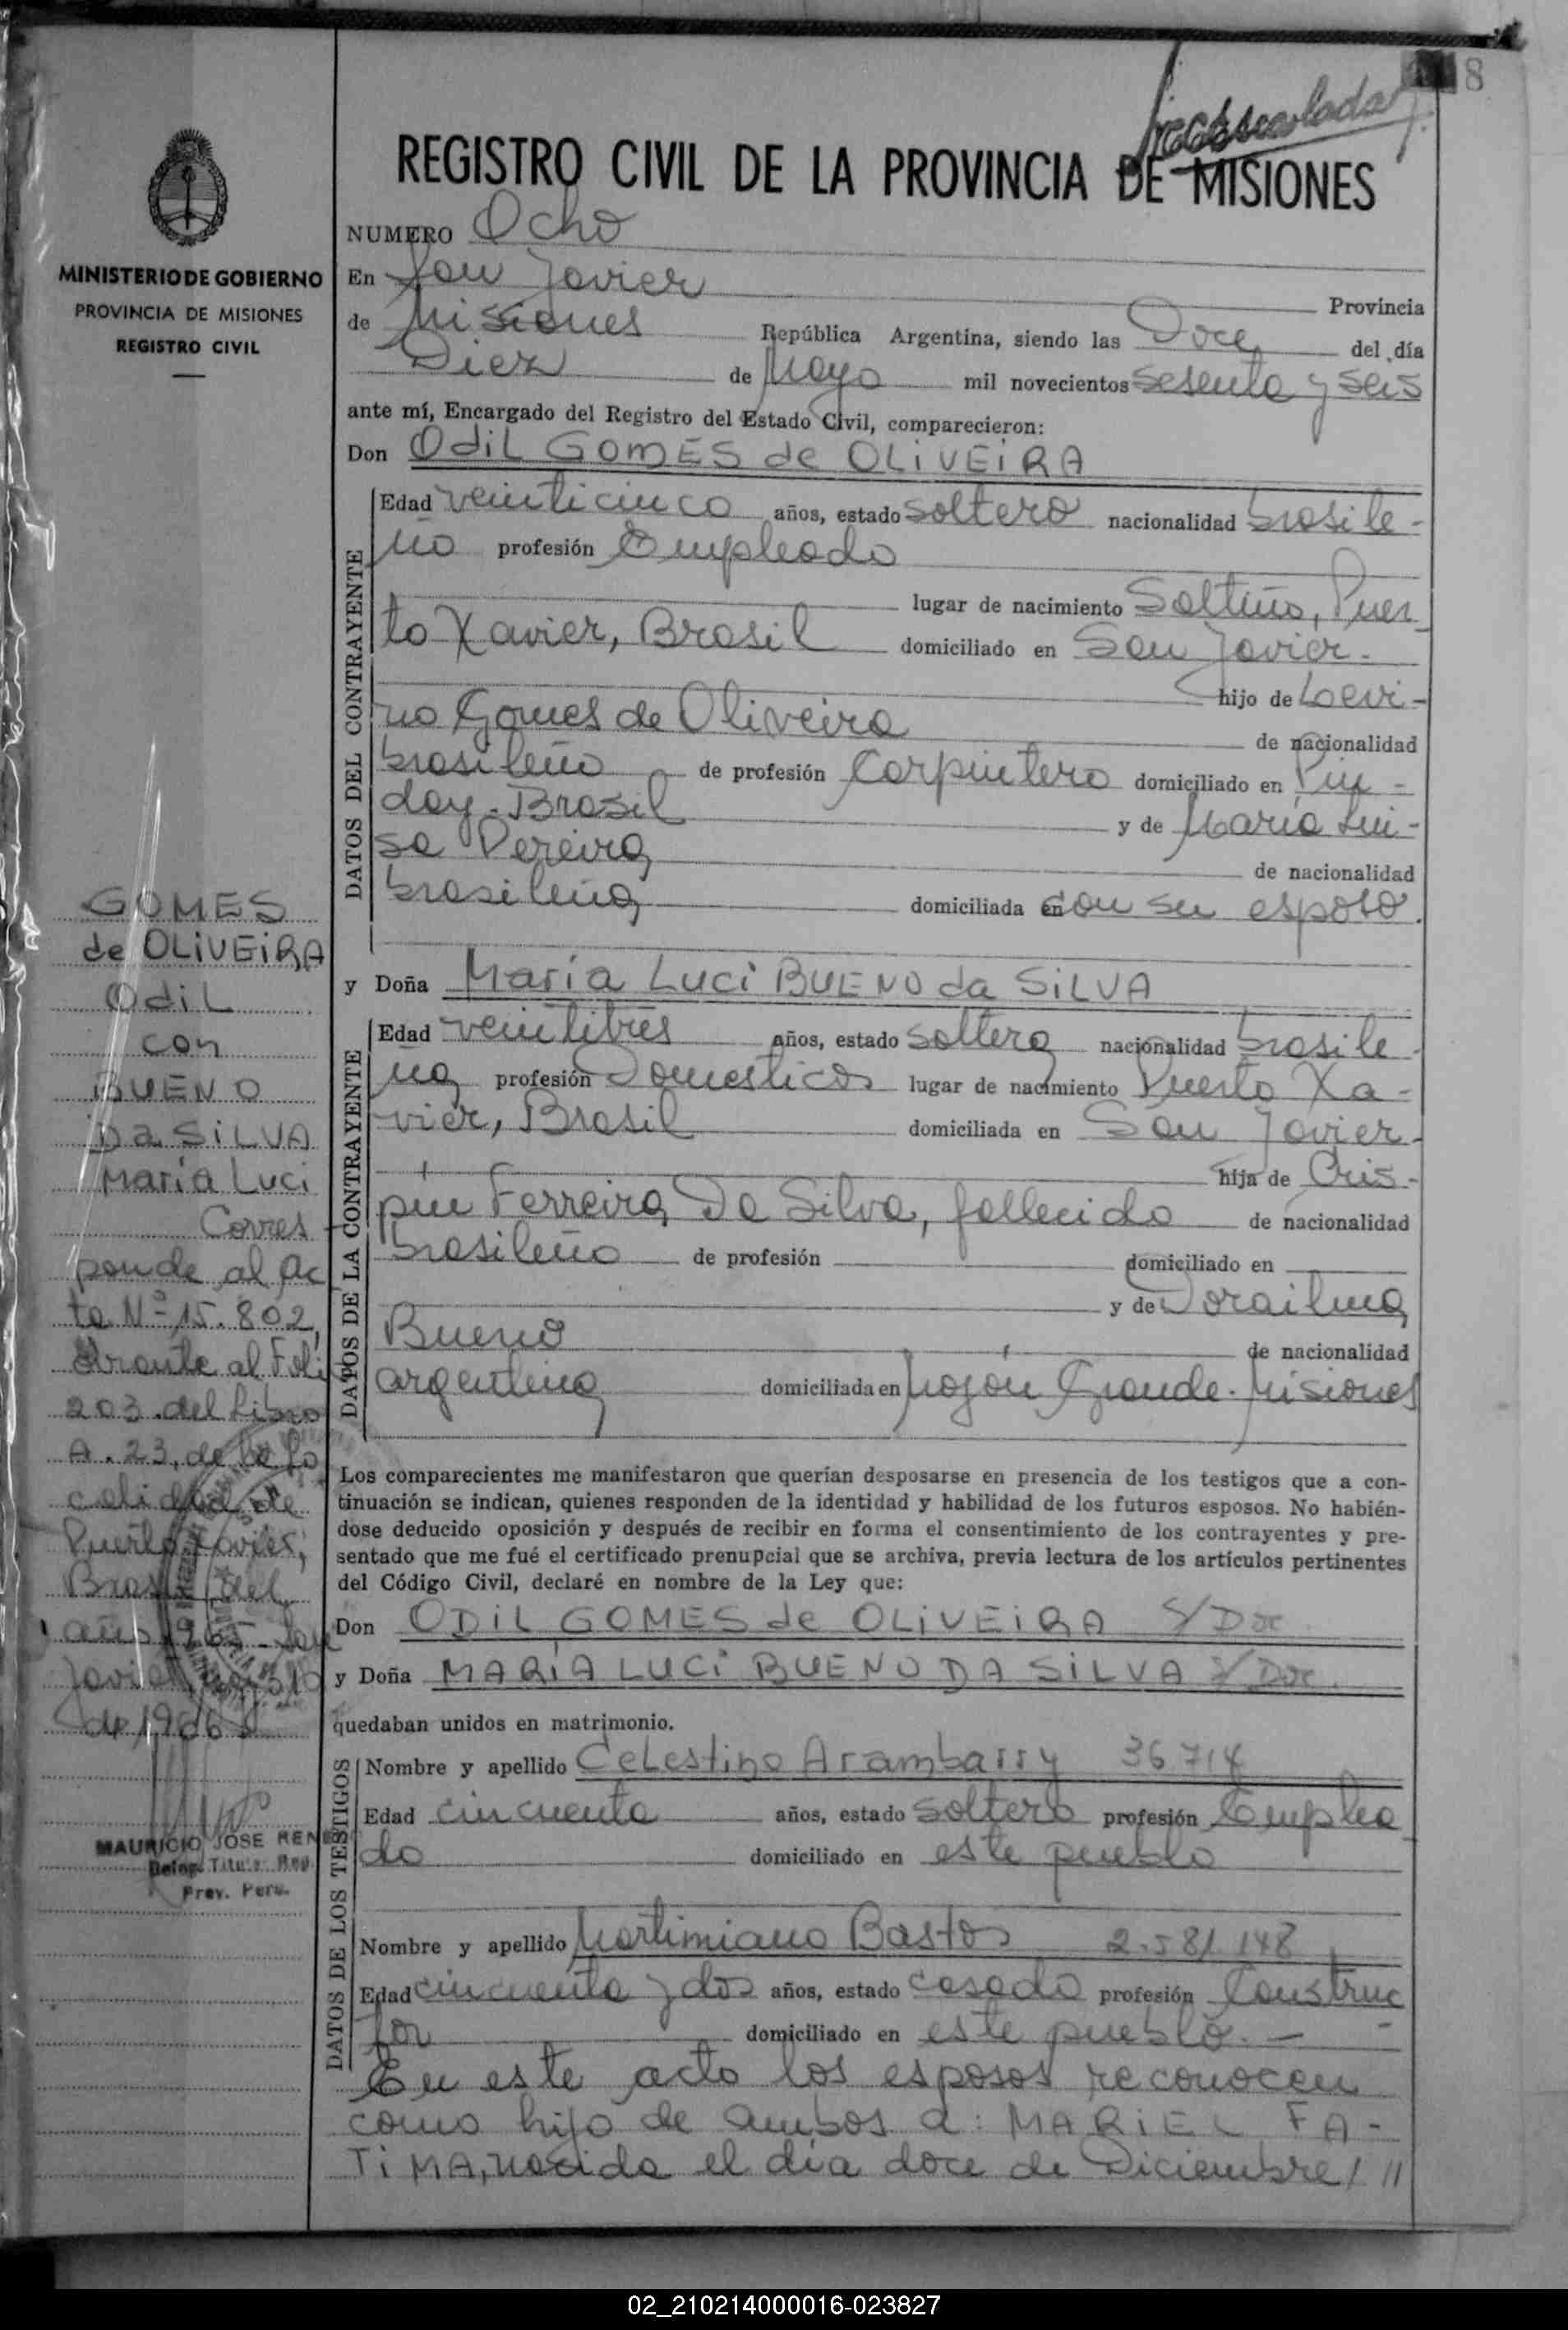 8
REGISTRO CIVIL DE LA PROVINCIA DE MISIONES
NUMERO Ocho
En San Javier Provincia
de Misiones República Argentina, siendo las Doce del día
Diez de Mayo mil novecientos sesenta y seis
ante mí, Encargado del Registro del Estado Civil, comparecieron:
Don Odil GOMES de OLIVEIRA
DATOS DEL CONTRAYENTE
Edad veinticinco años, estado soltero nacionalidad brasile-
ño profesión Empleado
lugar de nacimiento Saltiño, Puer-
to Xavier, Brasil domiciliado en San Javier.
hijo de
no Gomes de Oliveira de nacionalidad
brasileño de profesión Carpintero domiciliado en Pin-
day-Brasil y de María Lui-
sa Pereira de nacionalidad
brasileña domiciliada en con su esposo.
y Doña María Luci BUENO da SILVA
DATOS DE LA CONTRAYENTE
Edad veintitres años, estado soltera nacionalidad brasile-
ña profesión Domesticos lugar de nacimiento Puerto Xa-
vier, Brasil domiciliada en San Javier-
hija de Cris-
pin Ferreira Da Silva, fallecido de nacionalidad
brasileño de profesión domiciliado en
y de Dorailina
Bueno de nacionalidad
argentina domiciliada en Mojón Grande. Misiones
Los comparecientes me manifestaron que querían desposarse en presencia de los testigos que a con-
tinuación se indican, quienes responden de la identidad y habilidad de los futuros esposos. No habién-
dose deducido oposición y después de recibir en forma el consentimiento de los contrayentes y pre-
sentado que me fué el certificado prenupcial que se archiva, previa lectura de los artículos pertinentes
del Código Civil, declaré en nombre de la Ley que:
Don ODIL GOMES de OLIVEIRA S/Doc
y Doña MARÍA LUCI BUENO DA SILVA S/Doc.
quedaban unidos en matrimonio.
DATOS DE LOS TESTIGOS
Nombre y apellido Celestino Arambarry 36714
Edad cincuenta años, estado soltero profesión Emplea
do domiciliado en este pueblo
Nombre y apellido Martimiano Bastos 2.581.148
Edad cincuenta y dos años, estado casado profesión Construc
tor domiciliado en este pueblo.-
En este acto los esposos reconocen
como hijo de ambos a: MARIEL FA-
TIMA, nacida el día doce de Diciembre///
MINISTERIO DE GOBIERNO
PROVINCIA DE MISIONES
REGISTRO CIVIL
GOMES
de OLIVEIRA
Odil
con
BUENO
Da SILVA
María Luci
Corres
ponde al Ac
ta Nº 15.802,
al Foli
203 del Libro
A.23, de la lo
calidad de
Puerto Xavier,
Brasil del
año 1965- San
Javier
de 1966
MAURICIO JOSE
02_210214000016-023827